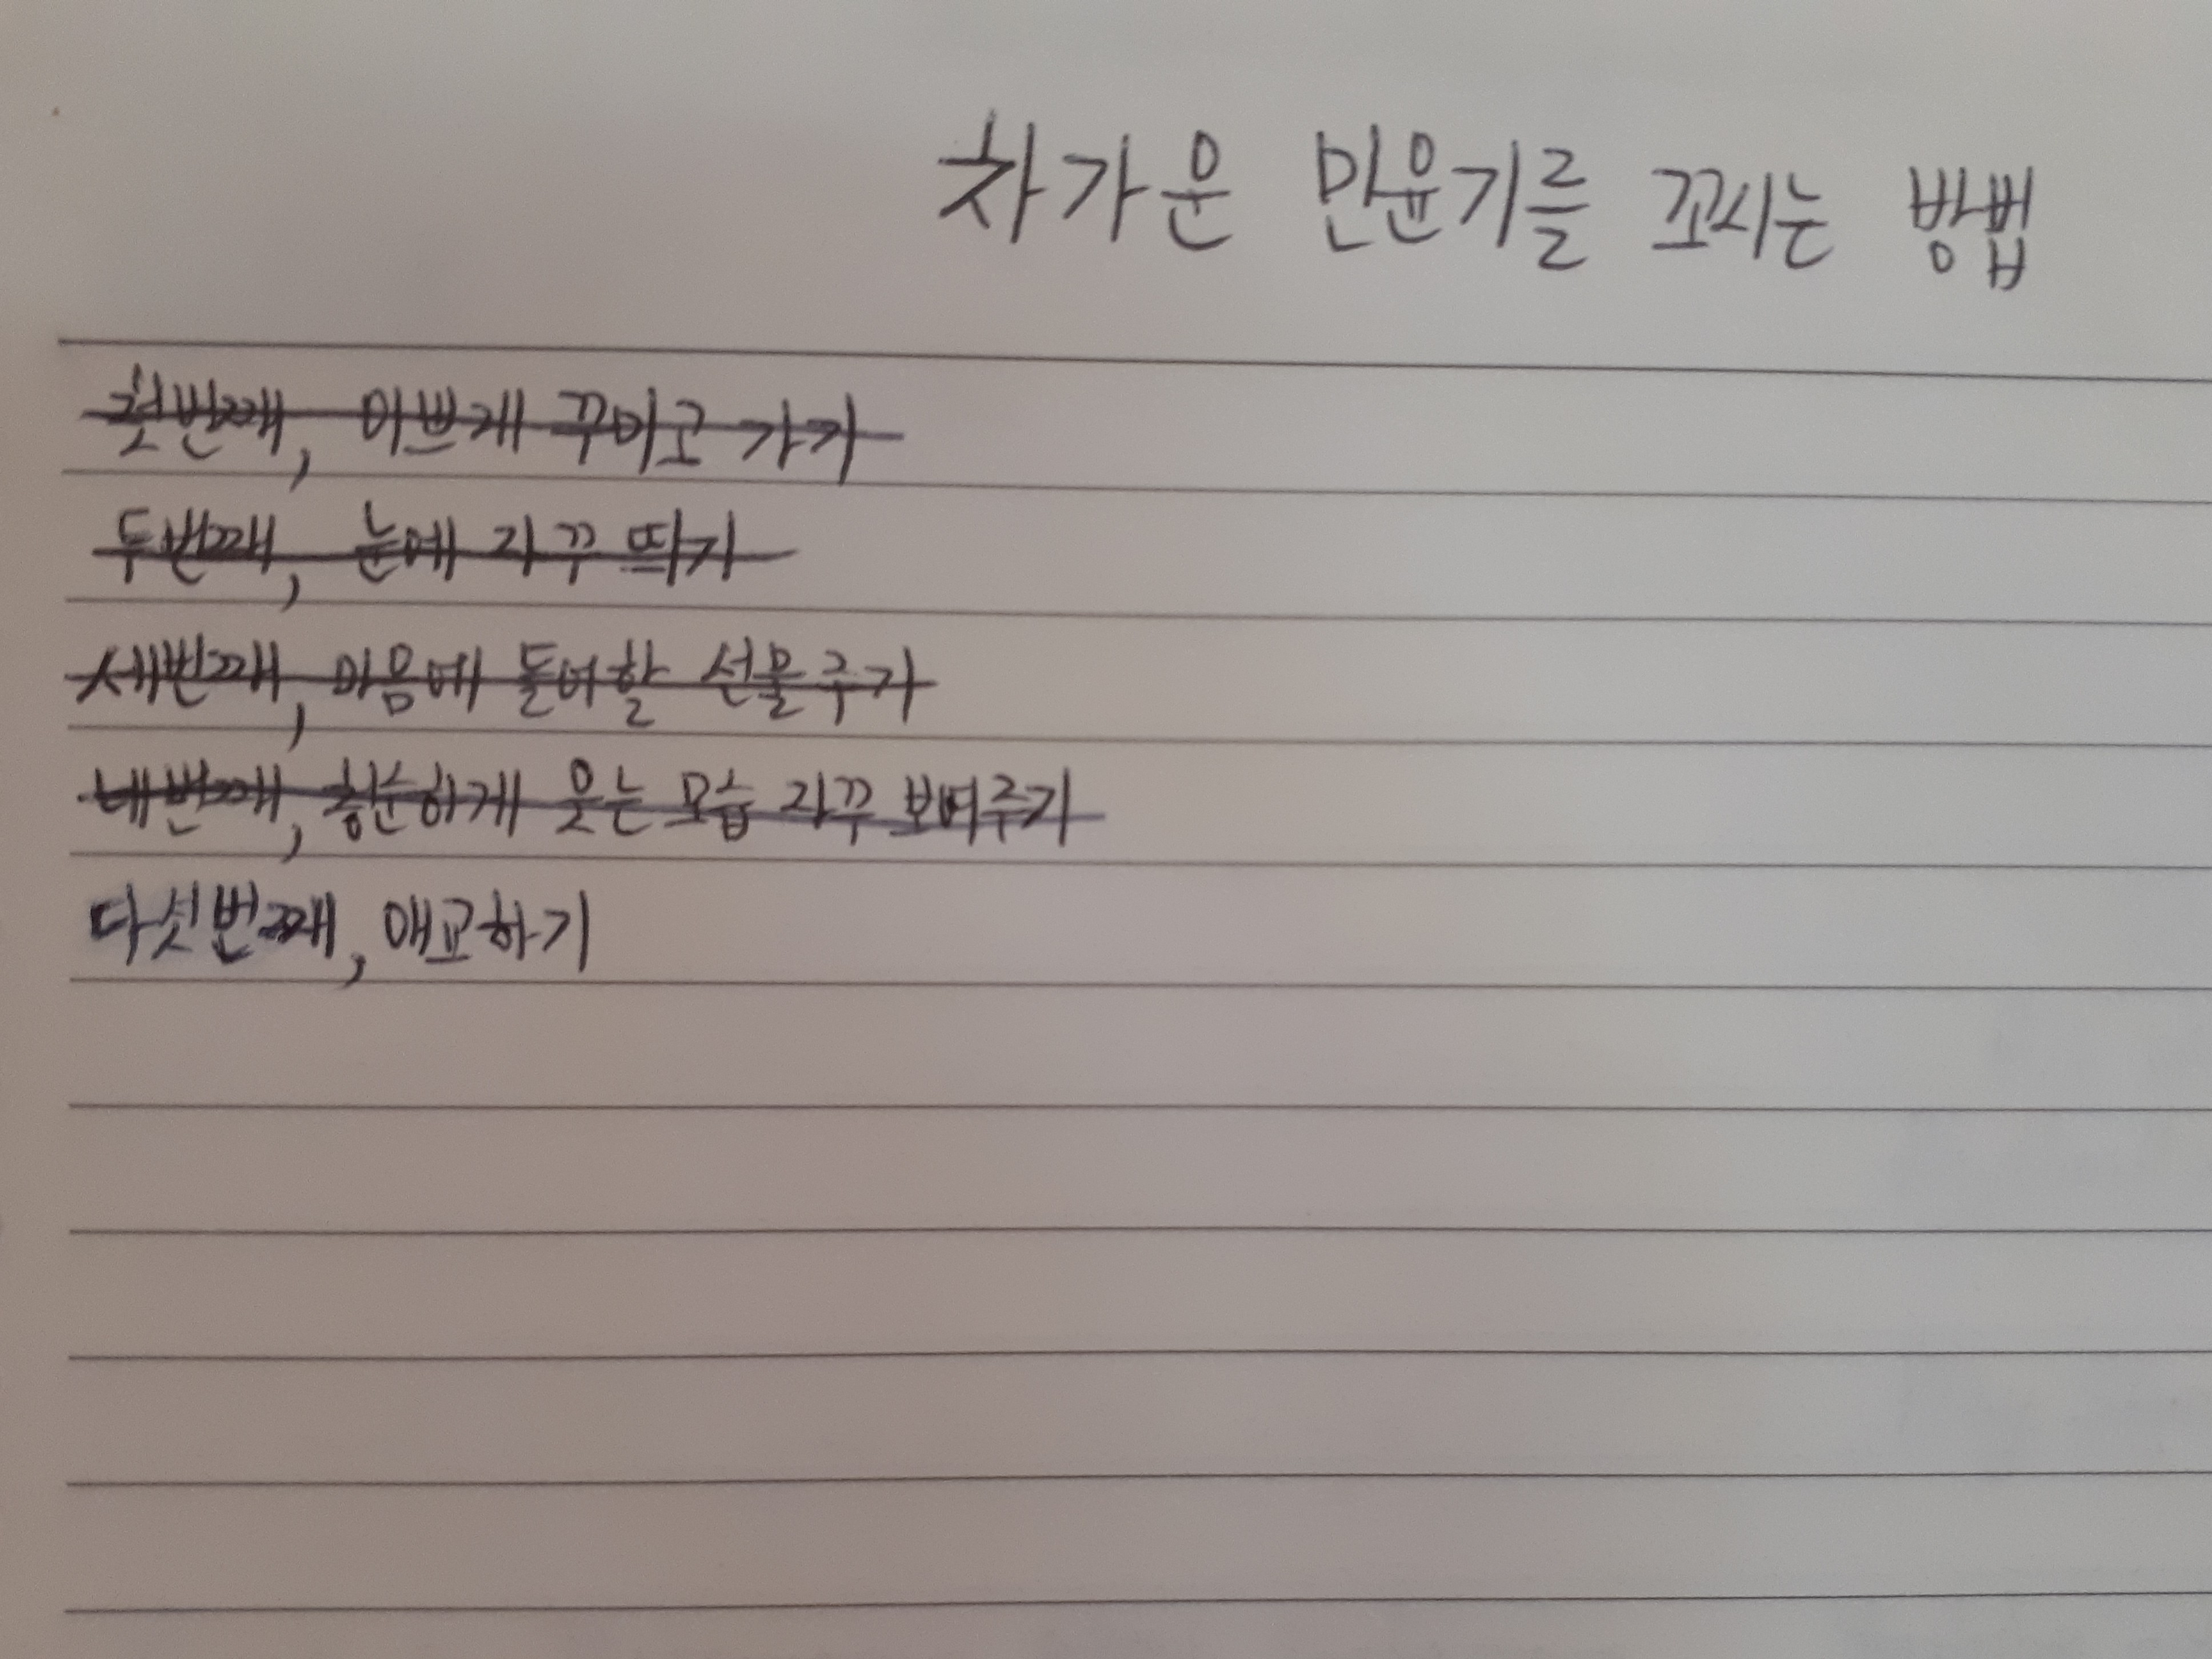 차가운 민윤기를 꼬시는 방법
첫번째, 이쁘게 꾸미고 가기
두번째, 눈에 자꾸 띄기
세번째, 마음에 들어할 선물주기
네번째, 흥분하게 웃는 모습 자꾸 보여주기
다섯번째, 애교하기